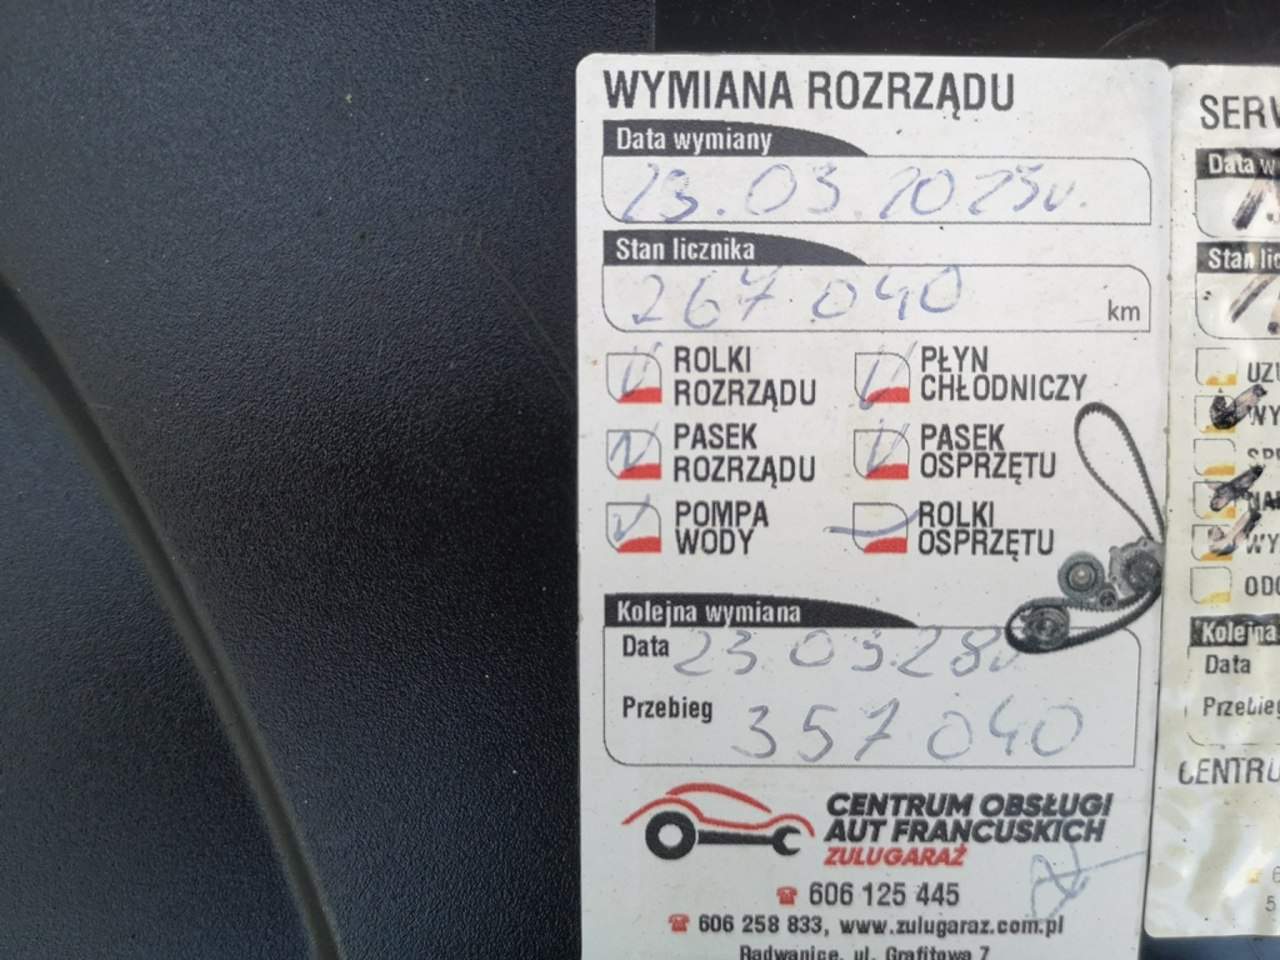 WYMIANA ROZRZĄDU
Data wymiany
23.03.2023r.
Stan licznika
267 040 km
ROLKI ROZRZĄDU
PŁYN CHŁODNICZY
PASEK ROZRZĄDU
PASEK OSPRZĘTU
POMPA WODY
ROLKI OSPRZĘTU
Kolejna wymiana
Data 23.03.28r
Przebieg 357 040
CENTRUM OBSŁUGI
AUT FRANCUSKICH
ZULUGARAŻ
606 125 445
606 258 833, www.zulugaraz.com.pl
Radwanice, ul. Grafitowa 7
SERW
Data w
Stan lic
UZU
WY
NA
WY
ODC
Kolejna
Data
Przebieg
CENTRU